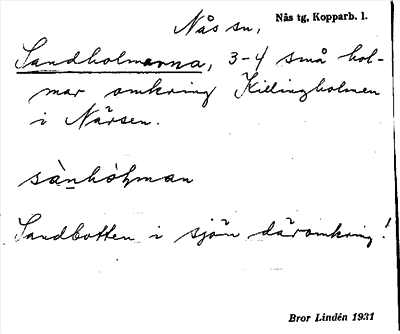 Nås sn,
Nås tg, Kopparb. l.
Sandholmarna, 3-4 små hol-
mar omkring Killingholmen
i Närsen.
sànhòḷman
Sandbotten i sjön däromkring!
Bror Lindén 1931